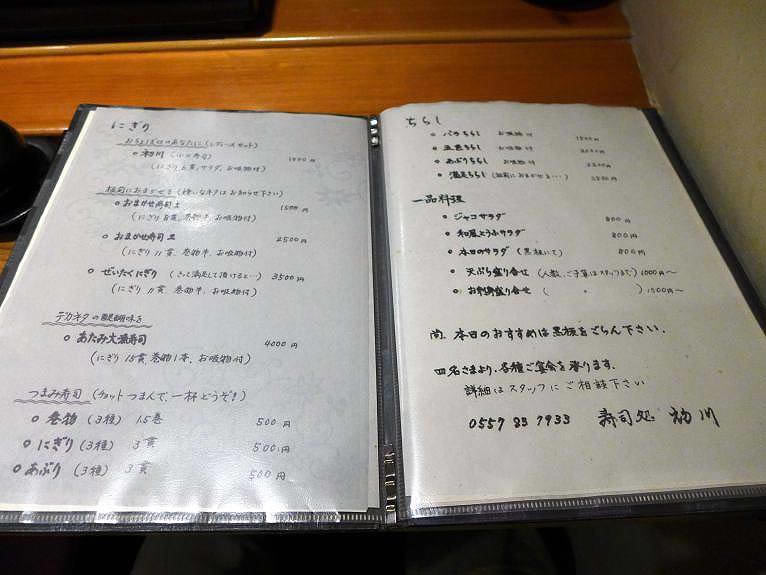 にぎり
おちょぼ口のあなたに（レディースセット）
初川（小口寿司）
（にぎり 貫、サラダ、お吸物付）
板前におまかせを（嫌いなネタはお知らせ下さい）
おまかせ寿司 1500円
（にぎり 8貫、巻物半、お吸物付）
おまかせ寿司 2500円
（にぎり 11貫、巻物半、お吸物付）
ぜいたくにぎり（きっと満足して頂けると…） 3500円
（にぎり 11貫、巻物半、お吸物付）
デカネタの醍醐味を
あたみ大漁寿司 4000円
（にぎり 15貫、巻物1本、お吸物付）
つまみ寿司（チョットつまんで、一杯どうぞ！）
巻物（3種） 1.5巻 500円
にぎり（3種） 3貫 500円
あぶり（3種） 3貫 500円
ちらし
バラちらし お吸物付
五色ちらし お吸物付
あぶりちらし お吸物付
満足ちらし（板前におまかせ…）
一品料理
ジャコサラダ 800円
和風とうふサラダ 800円
本日のサラダ（黒板にて） 800円
天ぷら盛り合せ（人数、ご予算はスタッフまで）1000円～
お刺身盛り合せ（ 〃 ）1500円～
尚、本日のおすすめは黒板をごらん下さい。
四名さまより、各種ご宴会を承ります。
詳細はスタッフにご相談下さい
0557 83 7933 寿司処 初川